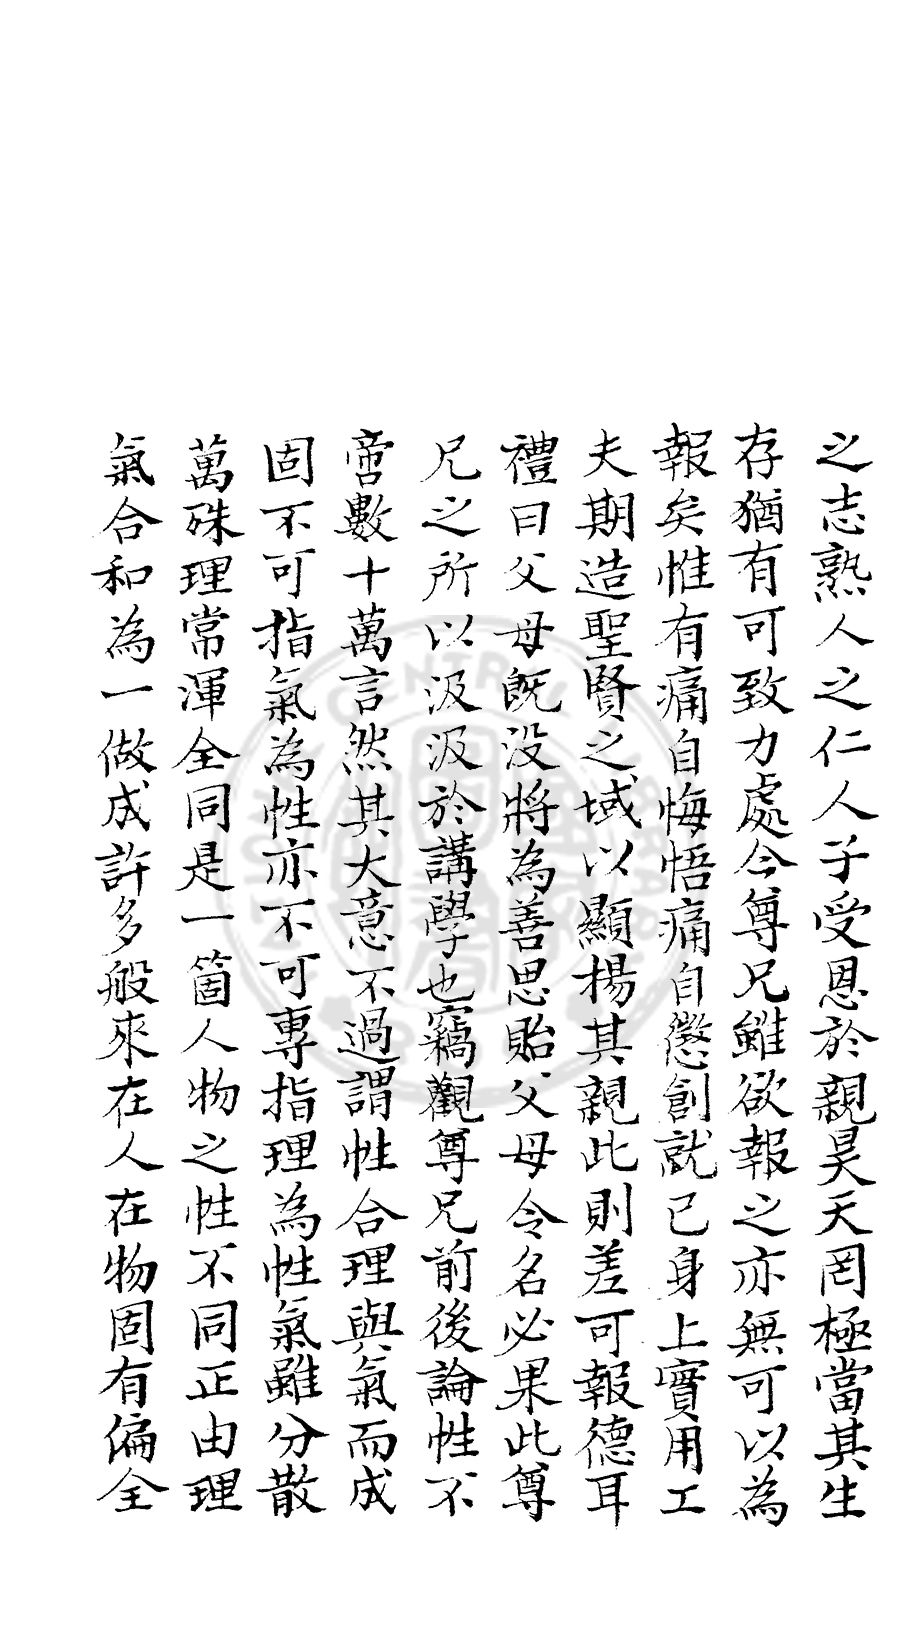 之志熟人之仁人子受恩於親昊天罔極當其生
存猶有可致力處今尊兄雖欲報之亦無可以為
報矣惟有痛自悔悟痛自懲創就已身上實用工
夫期造聖賢之域以顯揚其親此則差可報德耳
禮曰父母既没將為善思貽父母令名必果此尊
兄之所以汲汲於講學也竊觀尊兄前後論性不
啻數十萬言然其大意不過謂性合理與氣而成
固不可指氣為性亦不可專指理為性氣雖分散
萬殊理常渾全同是一箇人物之性不同正由理
氣合和為一做成許多般來在人在物固有偏全